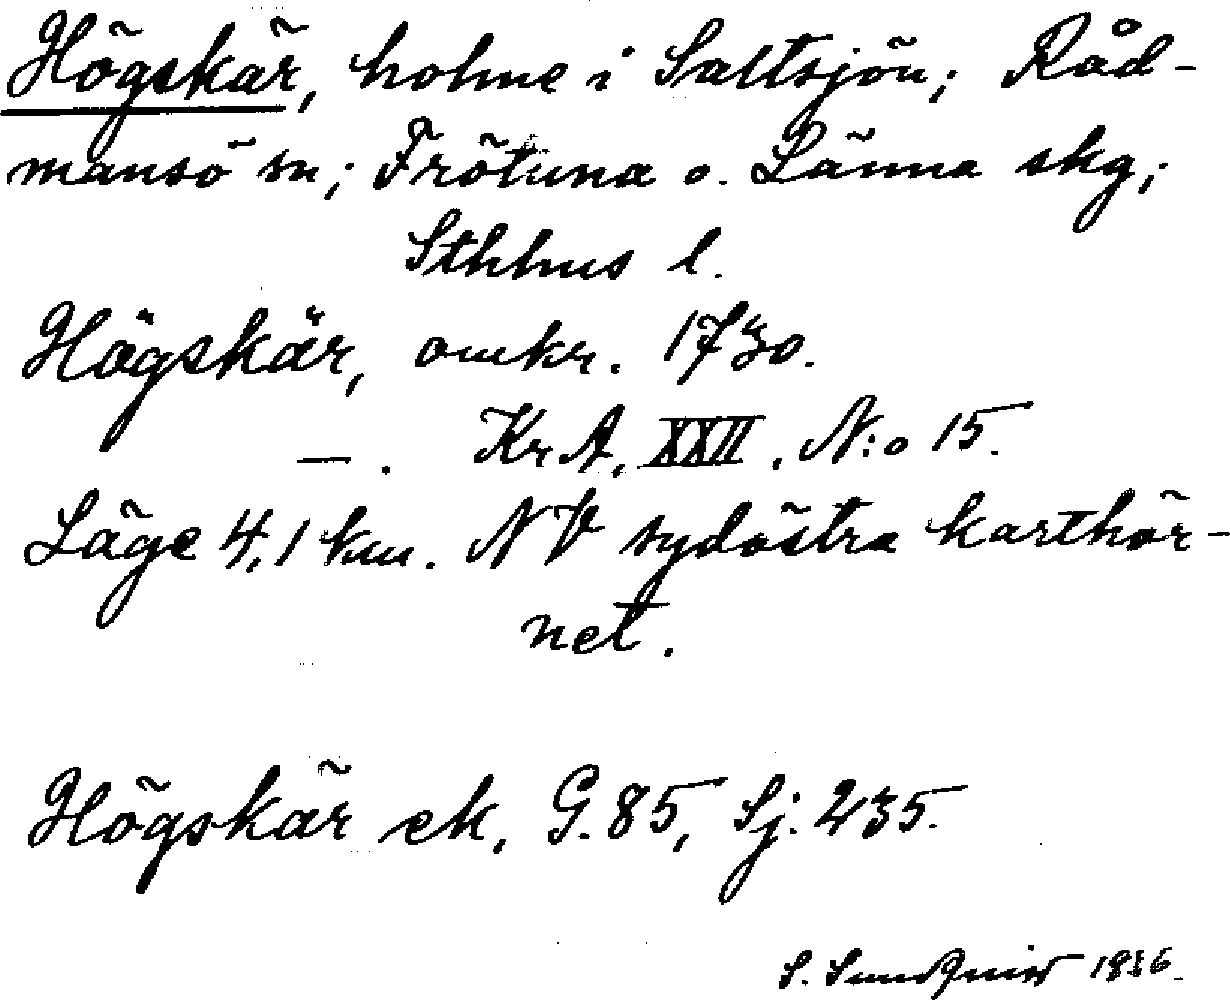 Högskär, holme i Saltsjön; Råd-
mansö sn; Frötuna o. Länna skg;
Sthlms l.
Högskär, omkr. 1730.
— . KrA, XXII, N:o 15.
Läge 4,1 km. NV sydöstra karthör-
net.
Högskär ek, G. 85, Sj. 235.
S. Sundquist